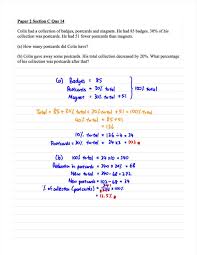 Paper 2 Section C Qns 14
Colin had a collection of badges, postcards and magnets. He had 85 badges. 30% of his
collection was postcards. He had 51 fewer postcards than magnets.
(a) How many postcards did Colin have?
(b) Colin gave away some postcards. His total collection decreased by 20%. What percentage
of his collection was postcards after that?
(a) Badges = 85
Postcards = 30% total
Magnet = 30% + 51
100% total
Total = 85 + 30% total + 30% total + 51 = 100% total
40% total = 85 + 51
= 136
10% total = 136 ÷ 4 = 34
Postcards = 30% total = 34 × 3 = 102
(b) 100% total = 34 × 10 = 340
Postcards = 34 × 3 = 102
New total = 340 - 68 = 272
New postcards = 102 - 68 = 34
% of collection (postcards) = 34/272 × 100%
= 12.5%